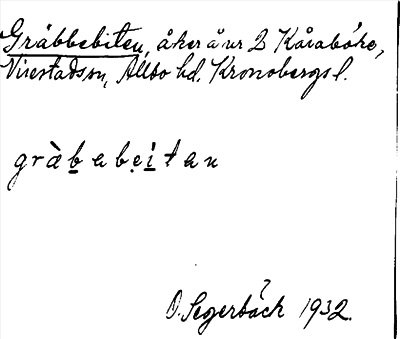 Gräbbebiten, åker å nr 2 Kåraböke,
Virestads sn, Allbo hd. Kronobergs l.
gràb̲ebẹí̲tan
O. Segerbäck 1932.